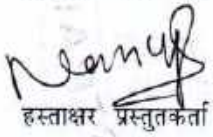 हस्ताक्षर प्रस्तुतकर्ता